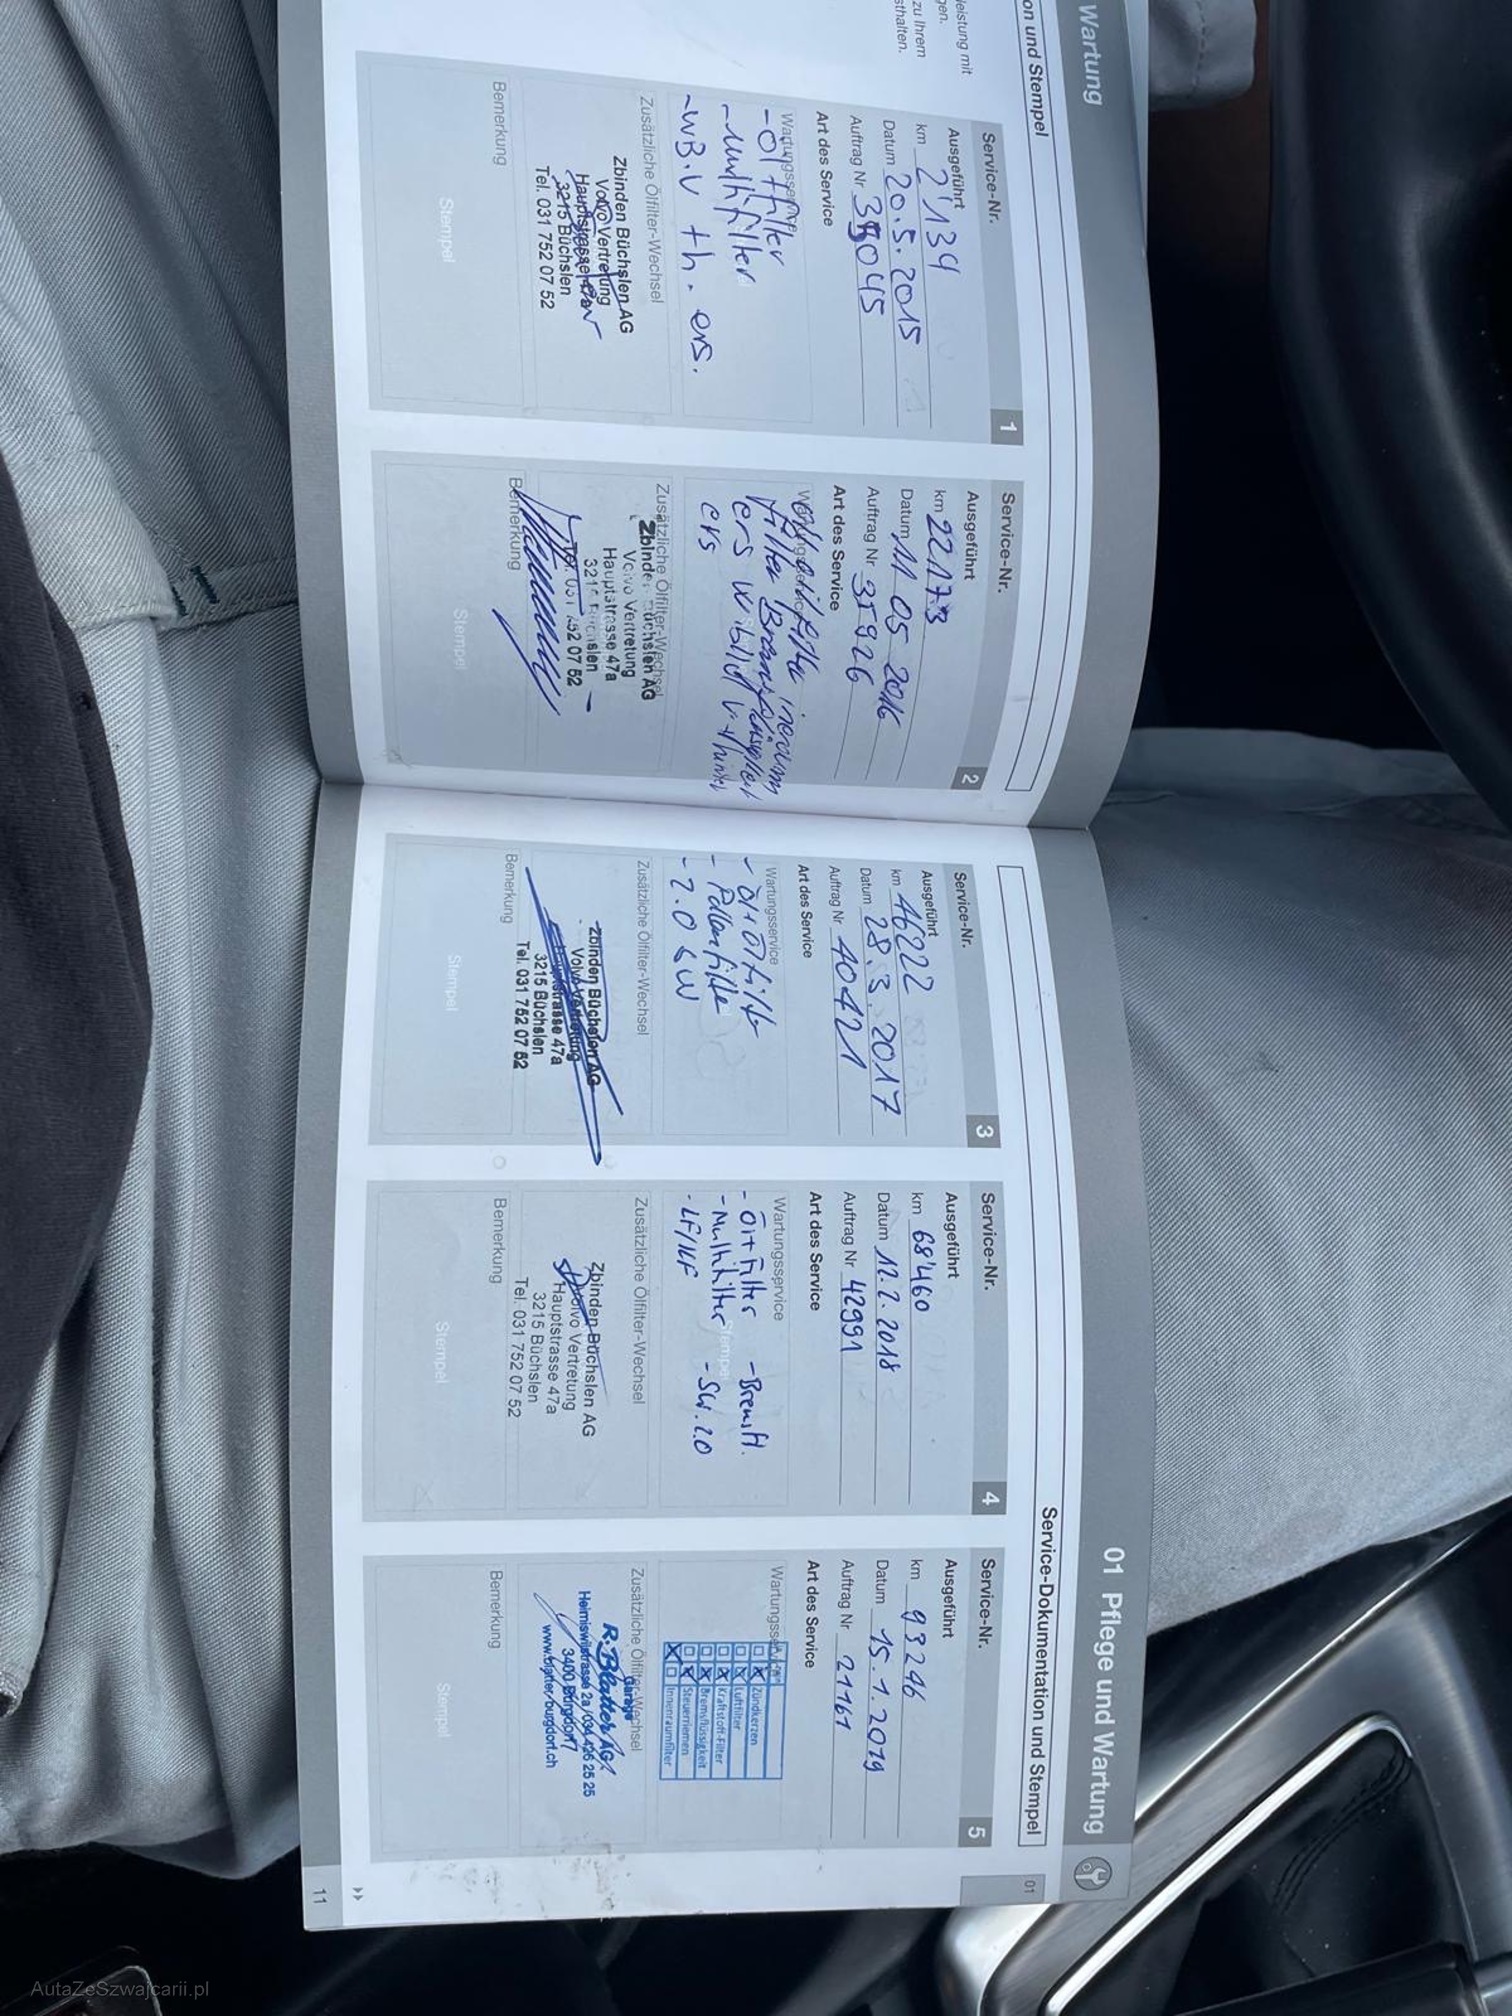 Wartung
on und Stempel
leistung mit
gen.
zu Ihrem
sthalten.
Service-Nr. 1
Ausgeführt
km 2'134
Datum 20.5.2015
Auftrag Nr
Art des Service
Wartungsservice
- Öl + Filter
- Multifilter
- WB. V + h. ers.
Zusätzliche Ölfilter-Wechsel
Zbinden Büchslen AG
Volvo Vertretung
Hauptstrasse 47a
3215 Büchslen
Tel. 031 752 07 52
Bemerkung
Stempel
Service-Nr. 2
Ausgeführt
km 22173
Datum 11 05 2016
Auftrag Nr 35926
Art des Service
Wartungsservice
ers
ers
Zusätzliche Ölfilter-Wechsel
Zbinden Büchslen AG
Volvo Vertretung
Hauptstrasse 47a
3215 Büchslen
Tel. 031 752 07 52
Bemerkung
Stempel
Service-Nr. 3
Ausgeführt
km 46222
Datum 28.3.2017
Auftrag Nr 40421
Art des Service
Wartungsservice
- Öl + Ölfilter
- Pollenfilter
- 2.0 SW
Zusätzliche Ölfilter-Wechsel
Zbinden Büchslen AG
Volvo Vertretung
Hauptstrasse 47a
3215 Büchslen
Tel. 031 752 07 52
Bemerkung
Stempel
Service-Nr. 4
Ausgeführt
km 68'460
Datum 12.2.2018
Auftrag Nr 42991
Art des Service
Wartungsservice
- Öl + Filter - Bremsfl.
- Multifilter - SW. 2.0
- LF/KF
Zusätzliche Ölfilter-Wechsel
Zbinden Büchslen AG
Volvo Vertretung
Hauptstrasse 47a
3215 Büchslen
Tel. 031 752 07 52
Bemerkung
Stempel
01 Pflege und Wartung
Service-Dokumentation und Stempel
01
Service-Nr. 5
Ausgeführt
km 93246
Datum 15.1.2019
Auftrag Nr 21161
Art des Service
Wartungsservice
Zündkerzen
Luftfilter
Kraftstoff-Filter
Bremsflüssigkeit
Steuerriemen
Innenraumfilter
Zusätzliche Ölfilter-Wechsel
Garage
R. Blatter AG
Heimiswilstrasse 2a / 034 426 25 25
3400 Burgdorf
www.blatter-burgdorf.ch
Bemerkung
Stempel
11
AutaZeSzwajcarii.pl